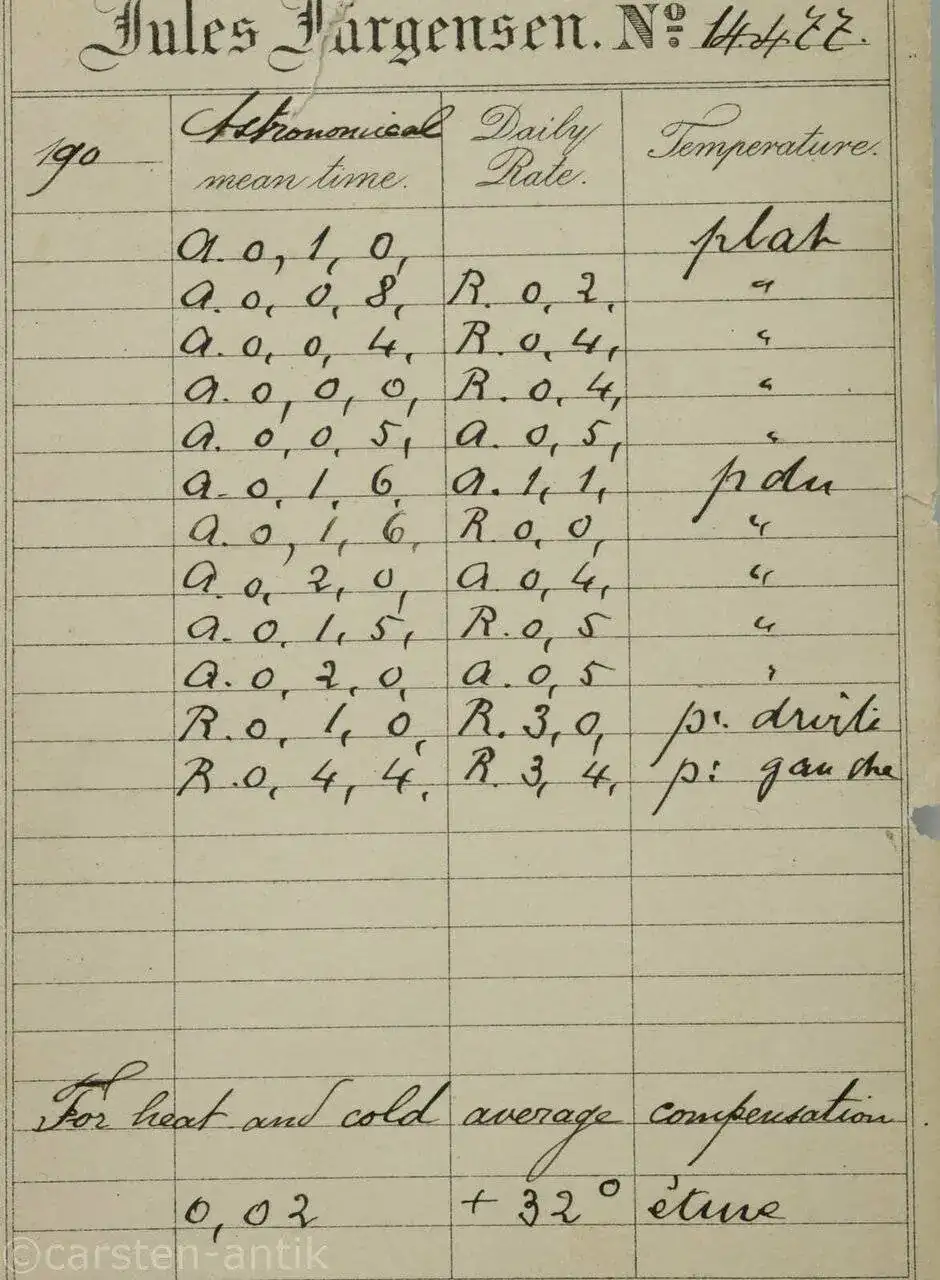 Jules Jürgensen. No. 14477.
190 Astronomical mean time. Daily Rate. Temperature.
A. 0, 1, 0, plat
A. 0, 0, 8, R. 0, 2, "
A. 0, 0, 4, R. 0, 4, "
A. 0, 0, 0, R. 0, 4, "
A. 0, 0, 5, A. 0, 5, "
A. 0, 1, 6, A. 1, 1, pdu
A. 0, 1, 6, R. 0, 0, "
A. 0, 2, 0, A 0, 4, "
A. 0, 1, 5, R. 0, 5 "
A. 0, 2, 0, A. 0, 5 "
R. 0, 1, 0, R. 3, 0, p: droite
R. 0, 4, 4, R. 3, 4, p: gauche
For heat and cold average compensation
0,02 + 32° étuve
©carsten-antik